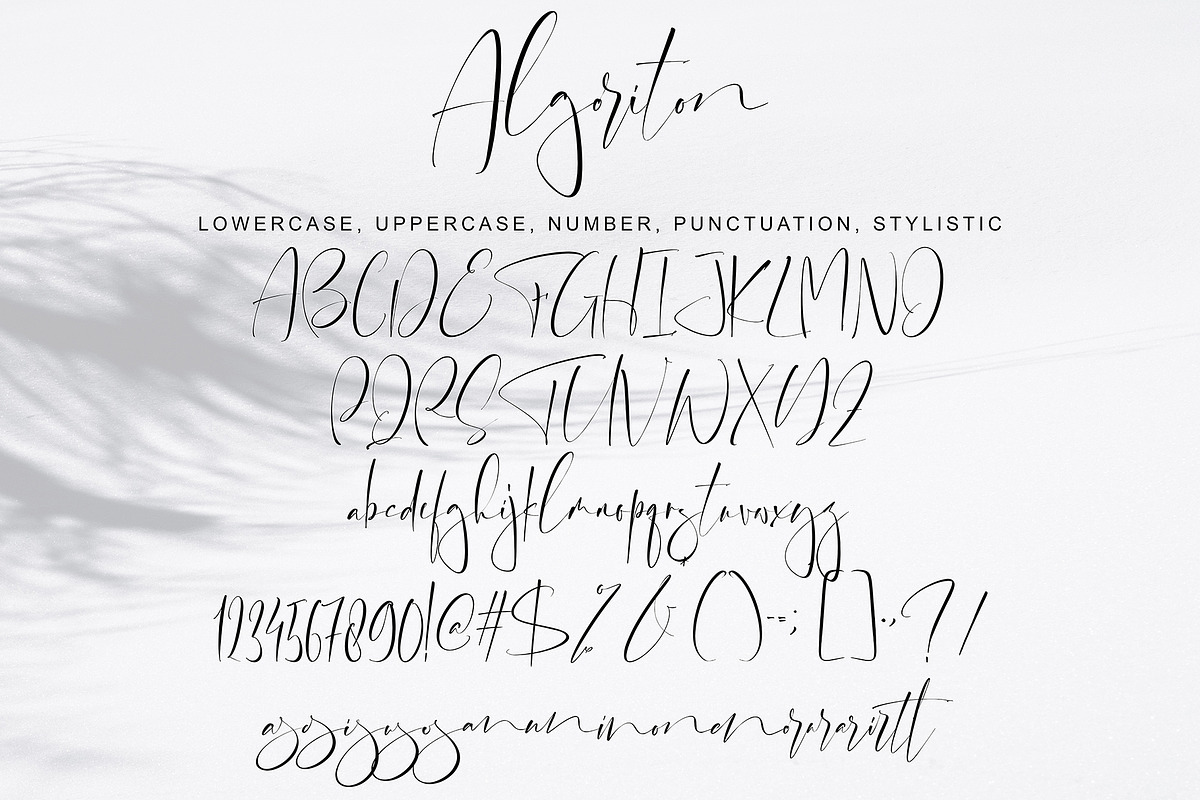 Algoriton
LOWERCASE, UPPERCASE, NUMBER, PUNCTUATION, STYLISTIC
ABCDEFGHIJKLMNO
PQRSTUVWXYZ
abcdefghijklmnopqrstuvwxyz
1234567890!@#$%&()-=;[].,?/